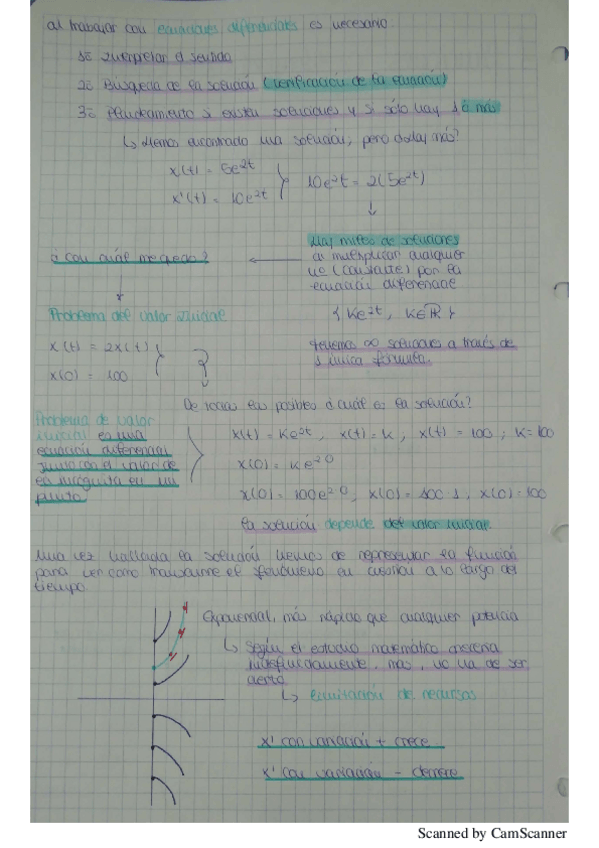 al trabajar con ecuaciones diferenciales es necesario
1º Interpretar el sentido
2º Búsqueda de la solución (verificación de la ecuación)
3º Planteamiento si existen soluciones y si sólo hay 1 ó más
↳ Hemos encontrado una solución, pero ¿hay más?
x(t) = 5e^2t
x'(t) = 10e^2t
10e^2t = 2(5e^2t)
Hay miles de soluciones
al multiplicar cualquier
nº (constante) por la
ecuación diferencial
¿con cuál me quedo?
{ Ke^2t, K∈ℝ }
Problema del valor inicial
tenemos ∞ soluciones a través de
1 única fórmula.
x'(t) = 2x(t)
x(0) = 100
De todas las posibles ¿cuál es la solución?
Problema de valor
inicial es una
ecuación diferencial
junto con el valor de
la incógnita en un
punto.
x(t) = Ke^2t, x(t) = K, x(t) = 100; K=100
x(0) = Ke^2·0
x(0) = 100e^2·0, x(0) = 100·1, x(0) = 100
la solución depende del valor inicial.
Una vez hallada la solución hemos de representar la función
para ver cómo transcurre el fenómeno en cuestión a lo largo del
tiempo.
Exponencial, más rápido que cualquier potencia
↳ Según el estudio matemático crecería
indefinidamente, mas, no ha de ser
cierto
↳ limitación de recursos
x' con variación + crece
x' con variación - decrece
Scanned by CamScanner